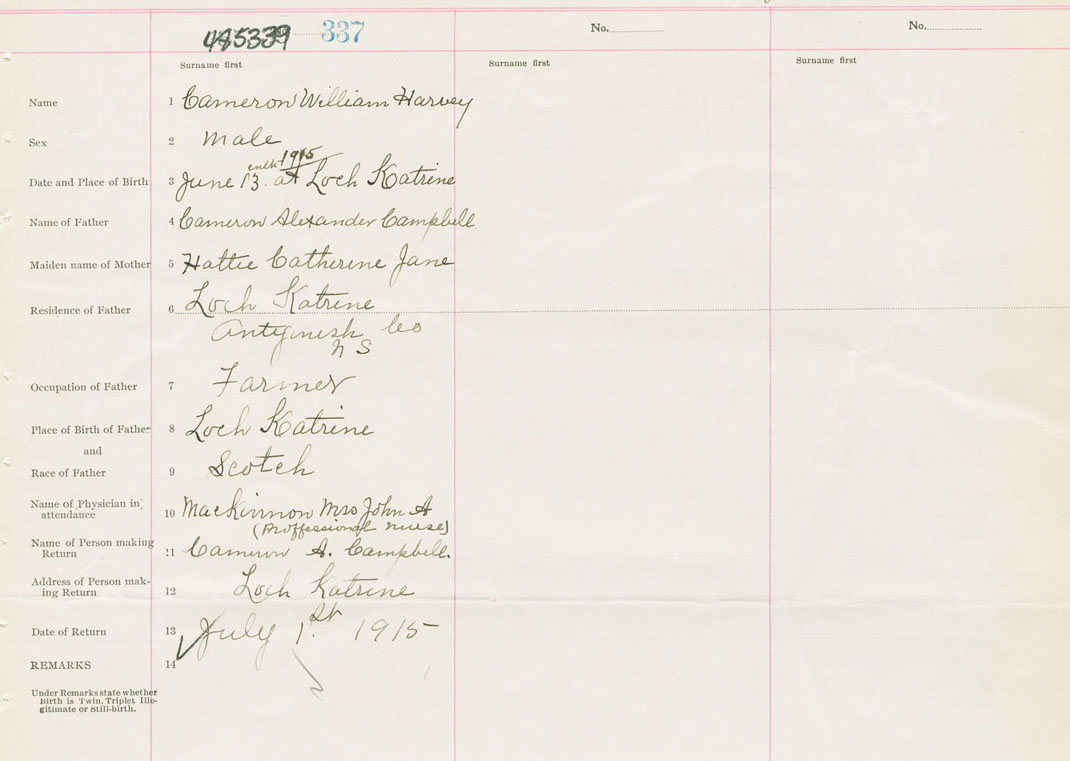 485339 337 No. No.
Surname first Surname first Surname first
Name 1 Cameron William Harvey
Sex 2 Male
1915
Date and Place of Birth 3 June 13 at Loch Katrine
Name of Father 4 Cameron Alexander Campbell
Maiden name of Mother 5 Hattie Catherine Jane
Residence of Father 6 Loch Katrine
Antigonish Co
N S
Occupation of Father 7 Farmer
Place of Birth of Father 8 Loch Katrine
and
Race of Father 9 Scotch
Name of Physician in
attendance 10 MacKinnon Mrs John A
(Proffessional nurse)
Name of Person making
Return 11 Cameron A. Campbell.
Address of Person mak-
ing Return 12 Loch Katrine
Date of Return 13 July 1st. 1915
REMARKS 14
Under Remarks state whether
Birth is Twin, Triplet Ille-
gitimate or Still-birth.